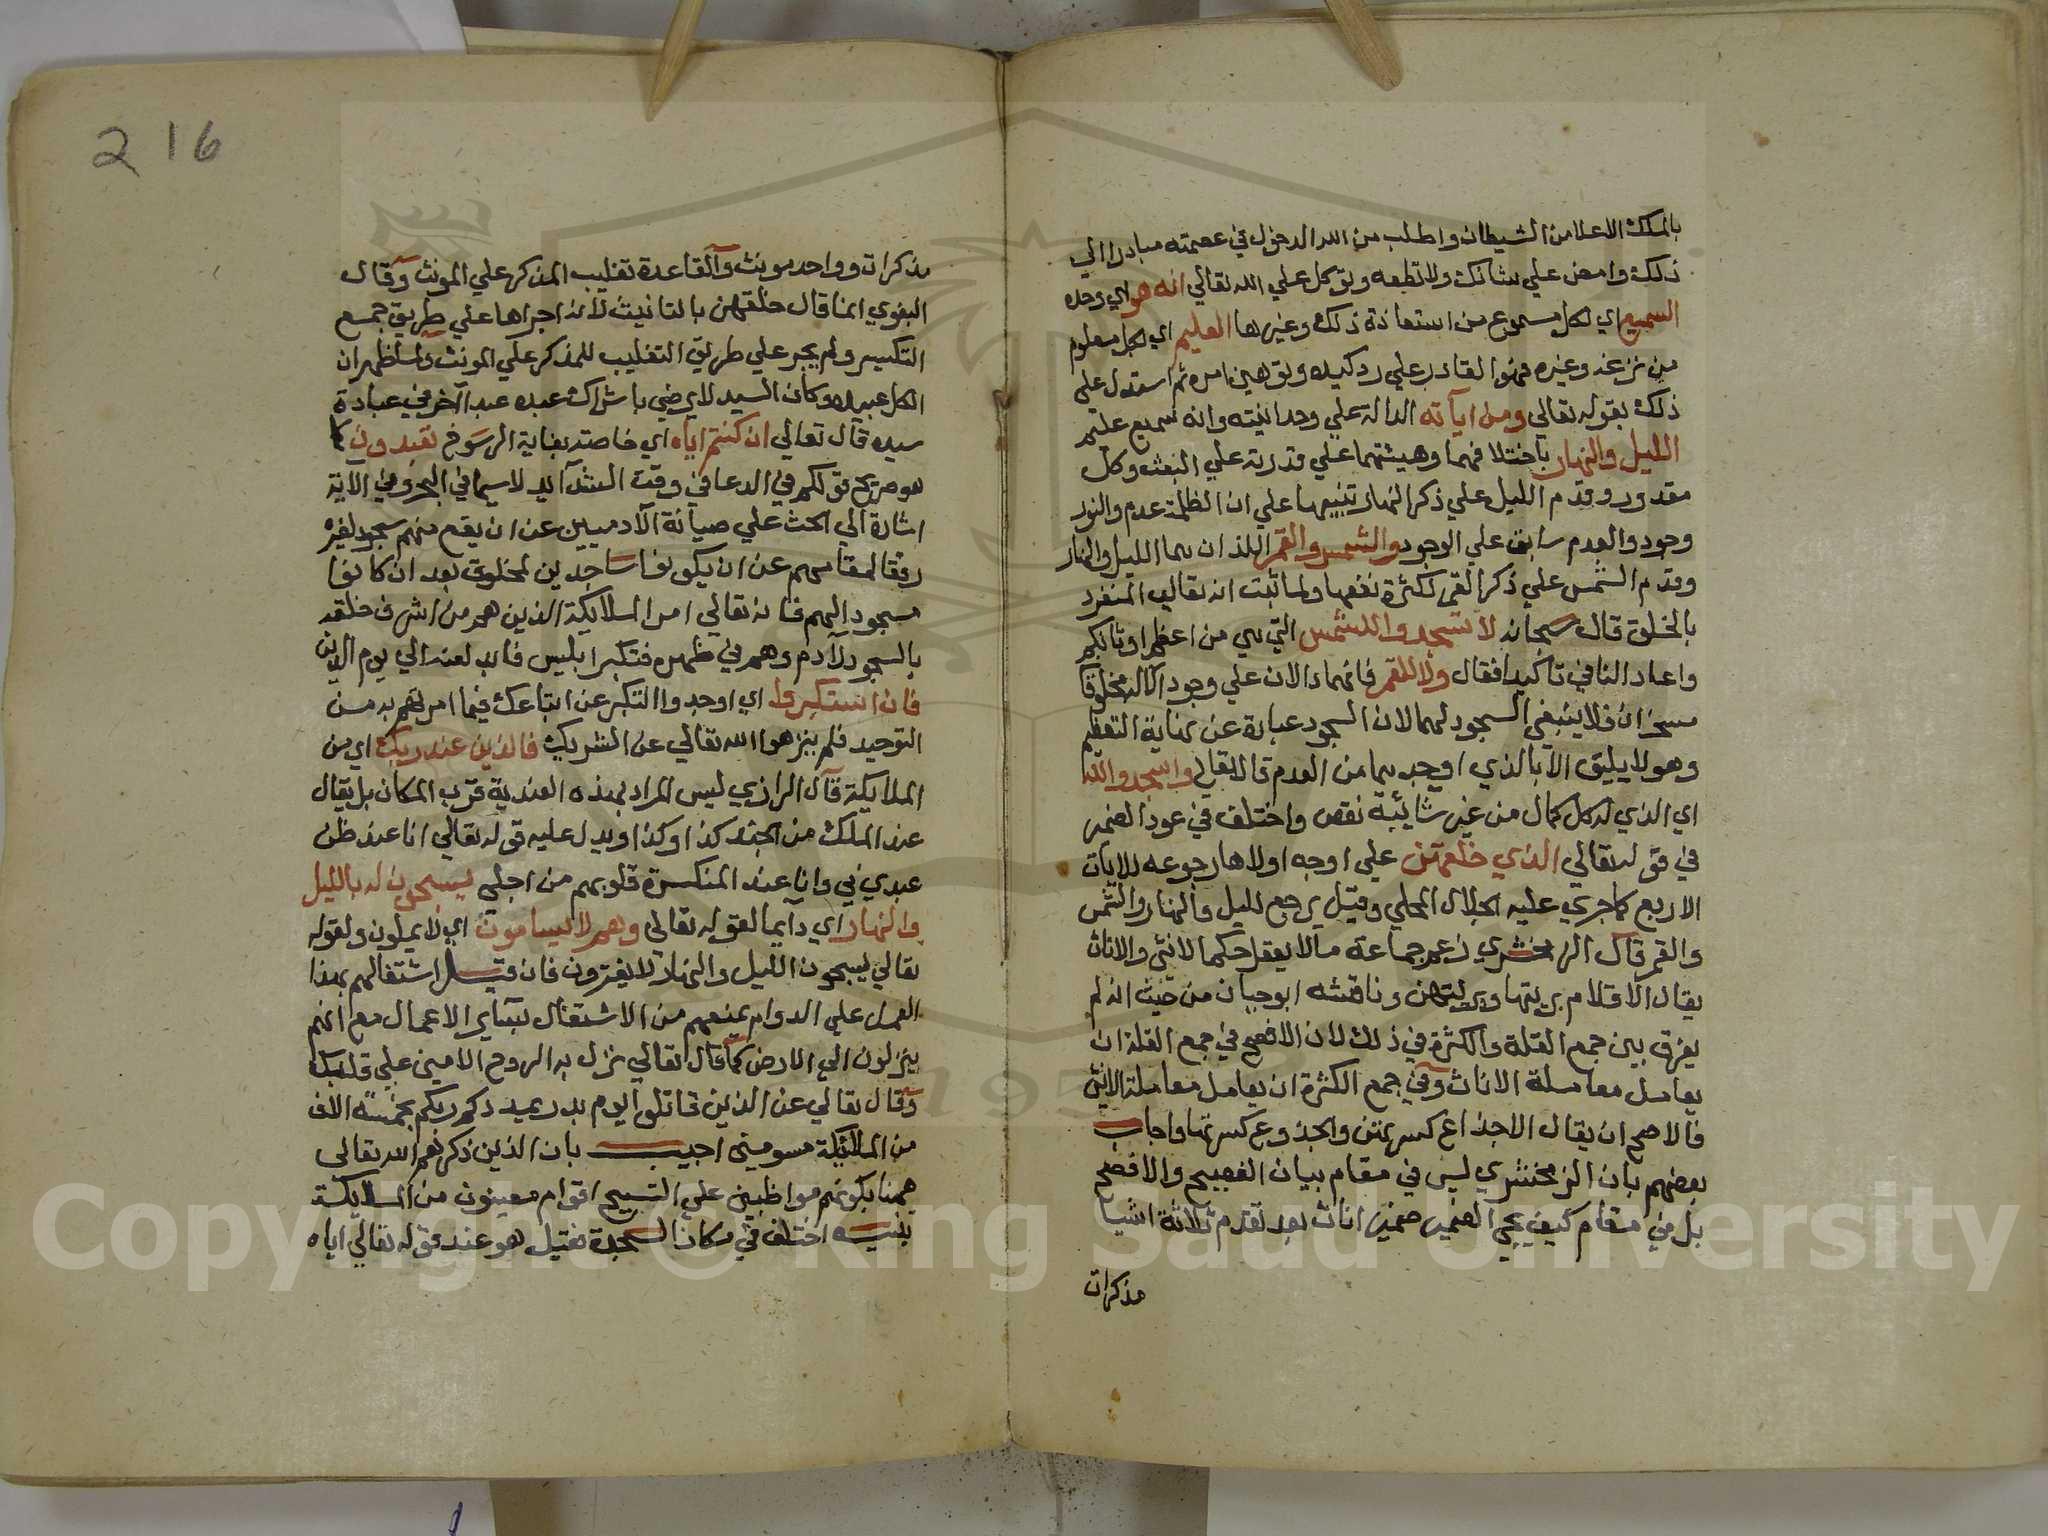 بالملك الاعلا من الشيطان واطلب من الله الدخول في عصمته مبادرا الي
ذلك وامض علي شانك ولا تطعه وتوكل علي الله تعالي انه هو اي وحده
السميع اي لكل مسموع من استعاذة ذلك وغيرها العليم اي لكل معلوم
من نزغه وغيره فهو القادر علي رد كيده وتوهين امره ثم استدل علي
ذلك بقوله تعالي ومن اياته الدالة علي وحدانيته وانه سميع عليم
الليل والنهار باختلافهما وهيئتهما علي قدرته علي البعث وكل
مقدور وقدم الليل علي ذكر النهار تنبيها علي ان الظلمة عدم والنور
وجود والعدم سابق علي الوجود والشمس والقمر اللذان هما الليل والنهار
وقدم الشمس علي ذكر القمر لكثرة نفعها ولما ثبت انه تعالي المنفرد
بالخلق قال سبحانه لا تسجدوا للشمس التي هي من اعظم اوثانكم
واعاد النافي تاكيدا فقال ولا للقمر فانهما دالان علي وجود الاله مخلوقا
مسخران فلا ينبغي السجود لهما لان السجود عبارة عن نهاية التعظيم
وهو لا يليق الا بالذي اوجدهما من العدم قال تعالي واسجدوا لله
اي الذي له كل كمال من غير شائبة نقص واختلف في عود الضمير
في قوله تعالي الذي خلقهن علي اوجه اولاها رجوعه للايات
الاربع كما جري عليه الجلال المحلي وقيل يرجع لليل والنهار والشمس
والقمر قال الزمخشري زعم جماعة مالا يعقل حكم الانثي والاناث
يقال الاقلام بريتها وبريتهن وناقشه ابو حيان من حيث انه لم
يفرق بين جمع القلة والكثرة في ذلك لان الافصح في جمع القلة ان
يعامل معاملة الاناث وفي جمع الكثرة ان يعامل معاملة الانثي
فالاصح ان يقال الاجذاع كسرتهن والجذوع كسرتها واجاب
بعضهم بان الزمخشري ليس في مقام بيان الفصيح والافصح
بل في مقام كيف يجي الضمير ضمير اناث بعد تقدم ثلاثة اشيا
مذكرات
216
مذكرات وواحد مونث والقاعدة تغليب المذكر علي المونث وقال
البغوي انما قال خلقهن بالتانيث لانه اجراها علي طريق جمع
التكسير ولم يجر علي طريق التغليب للمذكر علي المونث ولما ظهر ان
الكل عبيده وكان السيد لا يرضي باشراك عبده عبدا آخر في عبادة
سيده قال تعالي ان كنتم اياه اي خاصته بغاية الرسوخ تعبدون كا
هو صريح قولكم في الدعا في وقت الشدآيد لاسيما في البحر وفي الآية
اشارة الي الحث علي صيانة الآدميين عن ان يقع منهم سجود لغيره
رفقا لمقامهم عن ان يكونوا ساجدين لمخلوق بعد ان كانوا
مسجود اليهم فانه تعالي امر الملايكة الذين هم من اشرف خلقه
بالسجود لآدم وهم في ظهره فتكبر ابليس فابد لعنه الي يوم الدين
فان استكبروا اي اوجدوا التكبر عن اتباعك فيما امرتهم به من
التوحيد فلم ينزهوا الله تعالي عن الشريك فالذين عند ربك اي من
الملايكة قال الرازي ليس المراد بهذه العندية قرب المكان بل يقال
عند الملك من الجند كذا وكذا ويدل عليه قوله تعالي انا عند ظن
عبدي بي وانا عند المنكسرة قلوبهم من اجلي يسبحون له بالليل
والنهار اي دآيما لقوله تعالي وهم لا يسامون اي لا يملون ولقوله
تعالي يسبحون الليل والنهار لا يفترون فان قيل اشتغالهم بهذا
العمل علي الدوام يمنعهم من الاشتغال بسآير الاعمال مع انهم
ينزلون الي الارض كما قال تعالي نزل به الروح الامين علي قلبك
وقال تعالي عن الذين قاتلوا يوم بدر يمددكم ربكم بخمسة الاف
من الملائكة مسومين اجيب بان الذين ذكرهم الله تعالي
همنا بكونهم مواظبين علي التسبيح اقوام معينون من الملايكة
تنبيه اختلف في مكان السجدة فقيل هو عند قوله تعالي اياه
Copyright © King Saud University